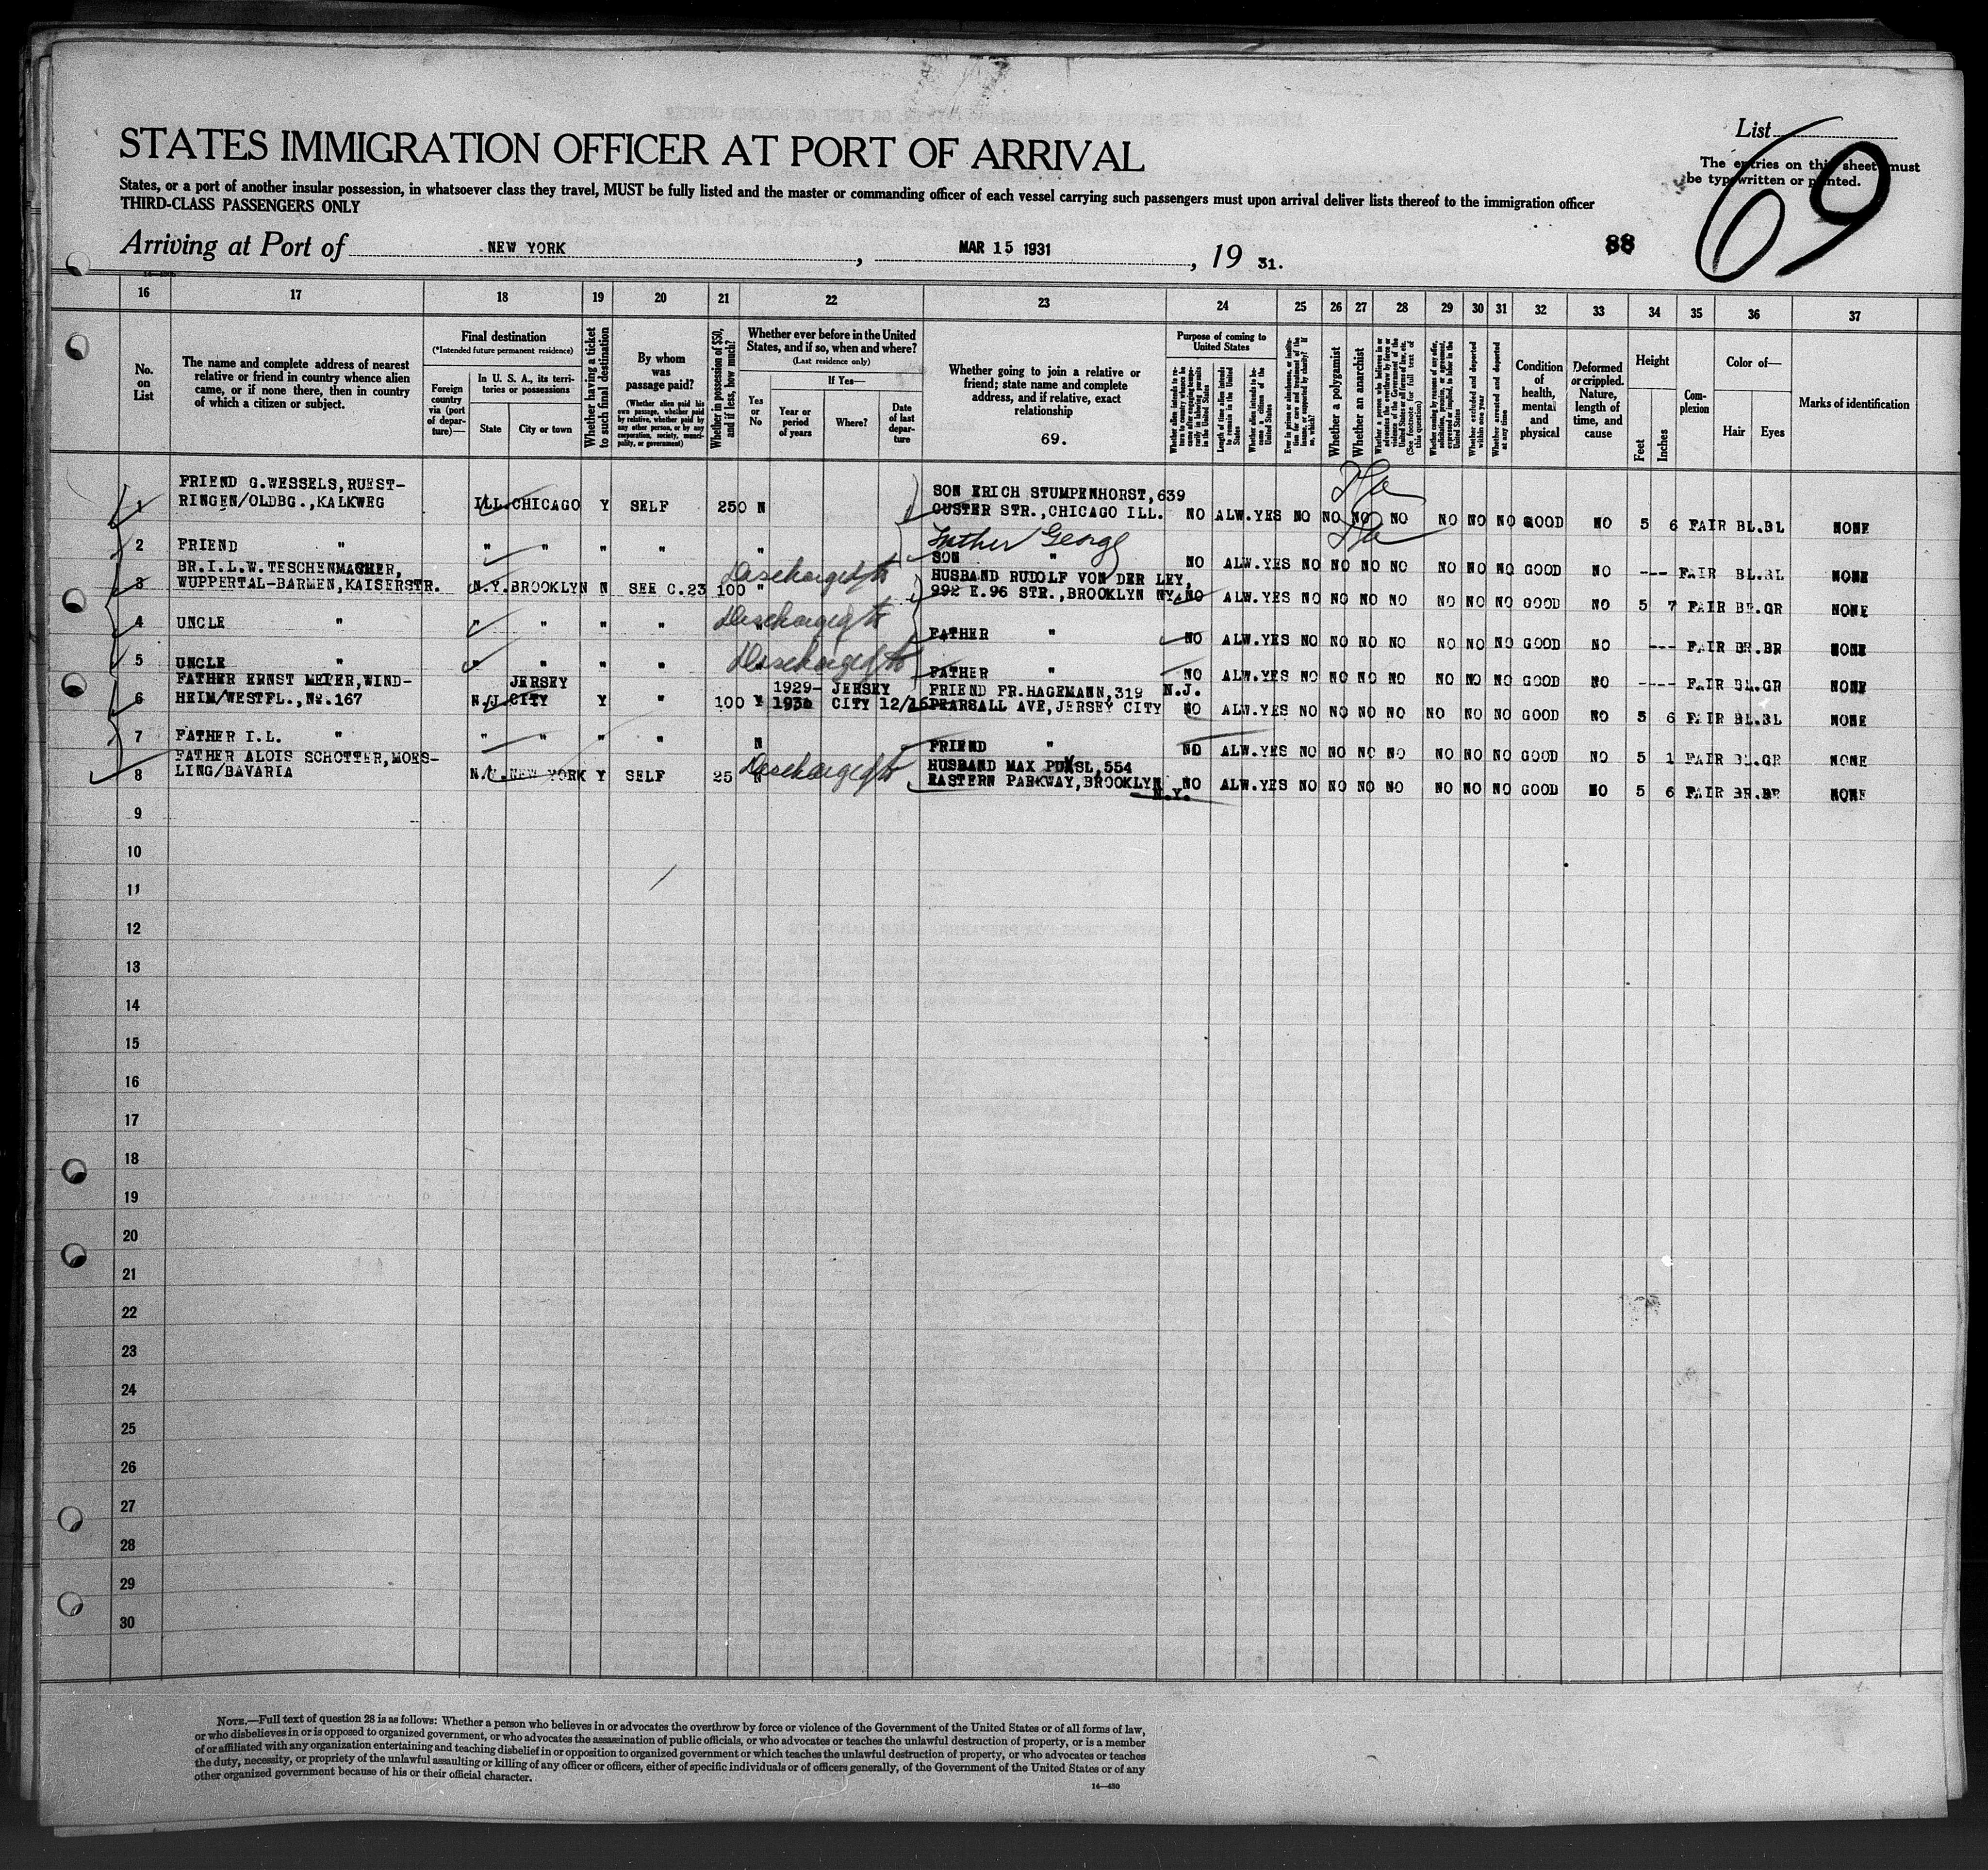 STATES IMMIGRATION OFFICER AT PORT OF ARRIVAL
List
69
The entries on this sheet must
be typewritten or printed.
States, or a port of another insular possession, in whatsoever class they travel, MUST be fully listed and the master or commanding officer of each vessel carrying such passengers must upon arrival deliver lists thereof to the immigration officer
THIRD-CLASS PASSENGERS ONLY
Arriving at Port of NEW YORK , MAR 15 1931 , 19 31.
88
16 17 18 19 20 21 22 23 24 25 26 27 28 29 30 31 32 33 34 35 36 37
No.
on
List
The name and complete address of nearest
relative or friend in country whence alien
came, or if none there, then in country
of which a citizen or subject.
Final destination
(*Intended future permanent residence)
Foreign
country
via (port
of depar-
ture)—
In U. S. A., its terri-
tories or possessions
State
City or town
Whether having a ticket
to such final destination
By whom
was
passage paid?
(Whether alien paid his
own passage, whether paid
by relative, whether paid by
any other person, or by any
corporation, society, munici-
pality, or government)
Whether in possession of $50,
and if less, how much?
Whether ever before in the United
States, and if so, when and where?
(Last residence only)
Yes
or
No
If Yes—
Year or
period
of years
Where?
Date
of last
depar-
ture
Whether going to join a relative or
friend; state name and complete
address, and if relative, exact
relationship
69.
Purpose of coming to
United States
Whether alien intends to re-
turn to country whence he
came after engaging tempo-
rarily in laboring pursuits
in the United States
Length of time alien intends
to remain in the United
States
Whether alien intends to be-
come a citizen of the
United States
Ever in prison or almshouse, or institu-
tion for care and treatment of the
insane, or supported by charity? If
so, which?
Whether a polygamist
Whether an anarchist
(See footnote for full text of
this question)
Whether coming by reason of any offer,
solicitation, promise, or agreement,
expressed or implied, to labor in the
United States
Whether excluded and deported
within one year
Whether arrested and deported
at any time
Condition
of
health,
mental
and
physical
Deformed
or crippled.
Nature,
length of
time, and
cause
Height
Feet
Inches
Com-
plexion
Color of—
Hair
Eyes
Marks of identification
1 FRIEND G.WESSELS, RUEST-
RINGEN/OLDBG., KALKWEG ILL. CHICAGO Y SELF 250 N SON ERICH STUMPENHORST, 639
CUSTER STR., CHICAGO ILL. NO ALW. YES NO NO NO NO NO NO NO GOOD NO 5 6 FAIR BL. BL NONE
2 FRIEND " " " " " " Father George
SON " NO ALW. YES NO NO NO NO NO NO NO GOOD NO --- FAIR BL. BL NONE
3 BR.I.L.W. TESCHENMACHER,
WUPPERTAL-BARMEN, KAISERSTR. N.Y. BROOKLYN N SEE C.23 100 " Discharged to HUSBAND RUDOLF VON DER LEY,
992 E.96 STR., BROOKLYN NY. NO ALW. YES NO NO NO NO NO NO NO GOOD NO 5 7 FAIR BR. GR NONE
4 UNCLE " " " " " " Discharged to FATHER " NO ALW. YES NO NO NO NO NO NO NO GOOD NO --- FAIR BR. BR NONE
5 UNCLE " " " " " Discharged to FATHER " NO ALW. YES NO NO NO NO NO NO NO GOOD NO ---- FAIR BL. GR NONE
6 FATHER ERNST MEIER, WIND-
HEIM/WESTFL., No.167 N.J. JERSEY
CITY Y " 100 Y 1929-
1930 JERSEY
CITY 12/15 FRIEND FR. HAGEMANN, 319 N.J.
PEARSALL AVE, JERSEY CITY NO ALW. YES NO NO NO NO NO NO NO GOOD NO 5 6 FAIR BL. BL NONE
7 FATHER I.L. " " " " " N FRIEND " NO ALW. YES NO NO NO NO NO NO NO GOOD NO 5 1 FAIR BL. GR NONE
8 FATHER ALOIS SCHOTTER, MOES-
LING/BAVARIA N.Y. NEW YORK Y SELF 25 N Discharged to HUSBAND MAX PUXSL, 554
EASTERN PARKWAY, BROOKLYN N.Y. NO ALW. YES NO NO NO NO NO NO NO GOOD NO 5 6 FAIR BR. BR NONE
9
10
11
12
13
14
15
16
17
18
19
20
21
22
23
24
25
26
27
28
29
30
NOTE.—Full text of question 28 is as follows: Whether a person who believes in or advocates the overthrow by force or violence of the Government of the United States or of all forms of law,
or who disbelieves in or is opposed to organized government, or who advocates the assassination of public officials, or who advocates or teaches the unlawful destruction of property, or is a member
of or affiliated with any organization entertaining and teaching disbelief in or opposition to organized government or which teaches the unlawful destruction of property, or who advocates or teaches
the duty, necessity, or propriety of the unlawful assaulting or killing of any officer or officers, either of specific individuals or of officers generally, of the Government of the United States or of any
other organized government because of his or their official character.
14—430